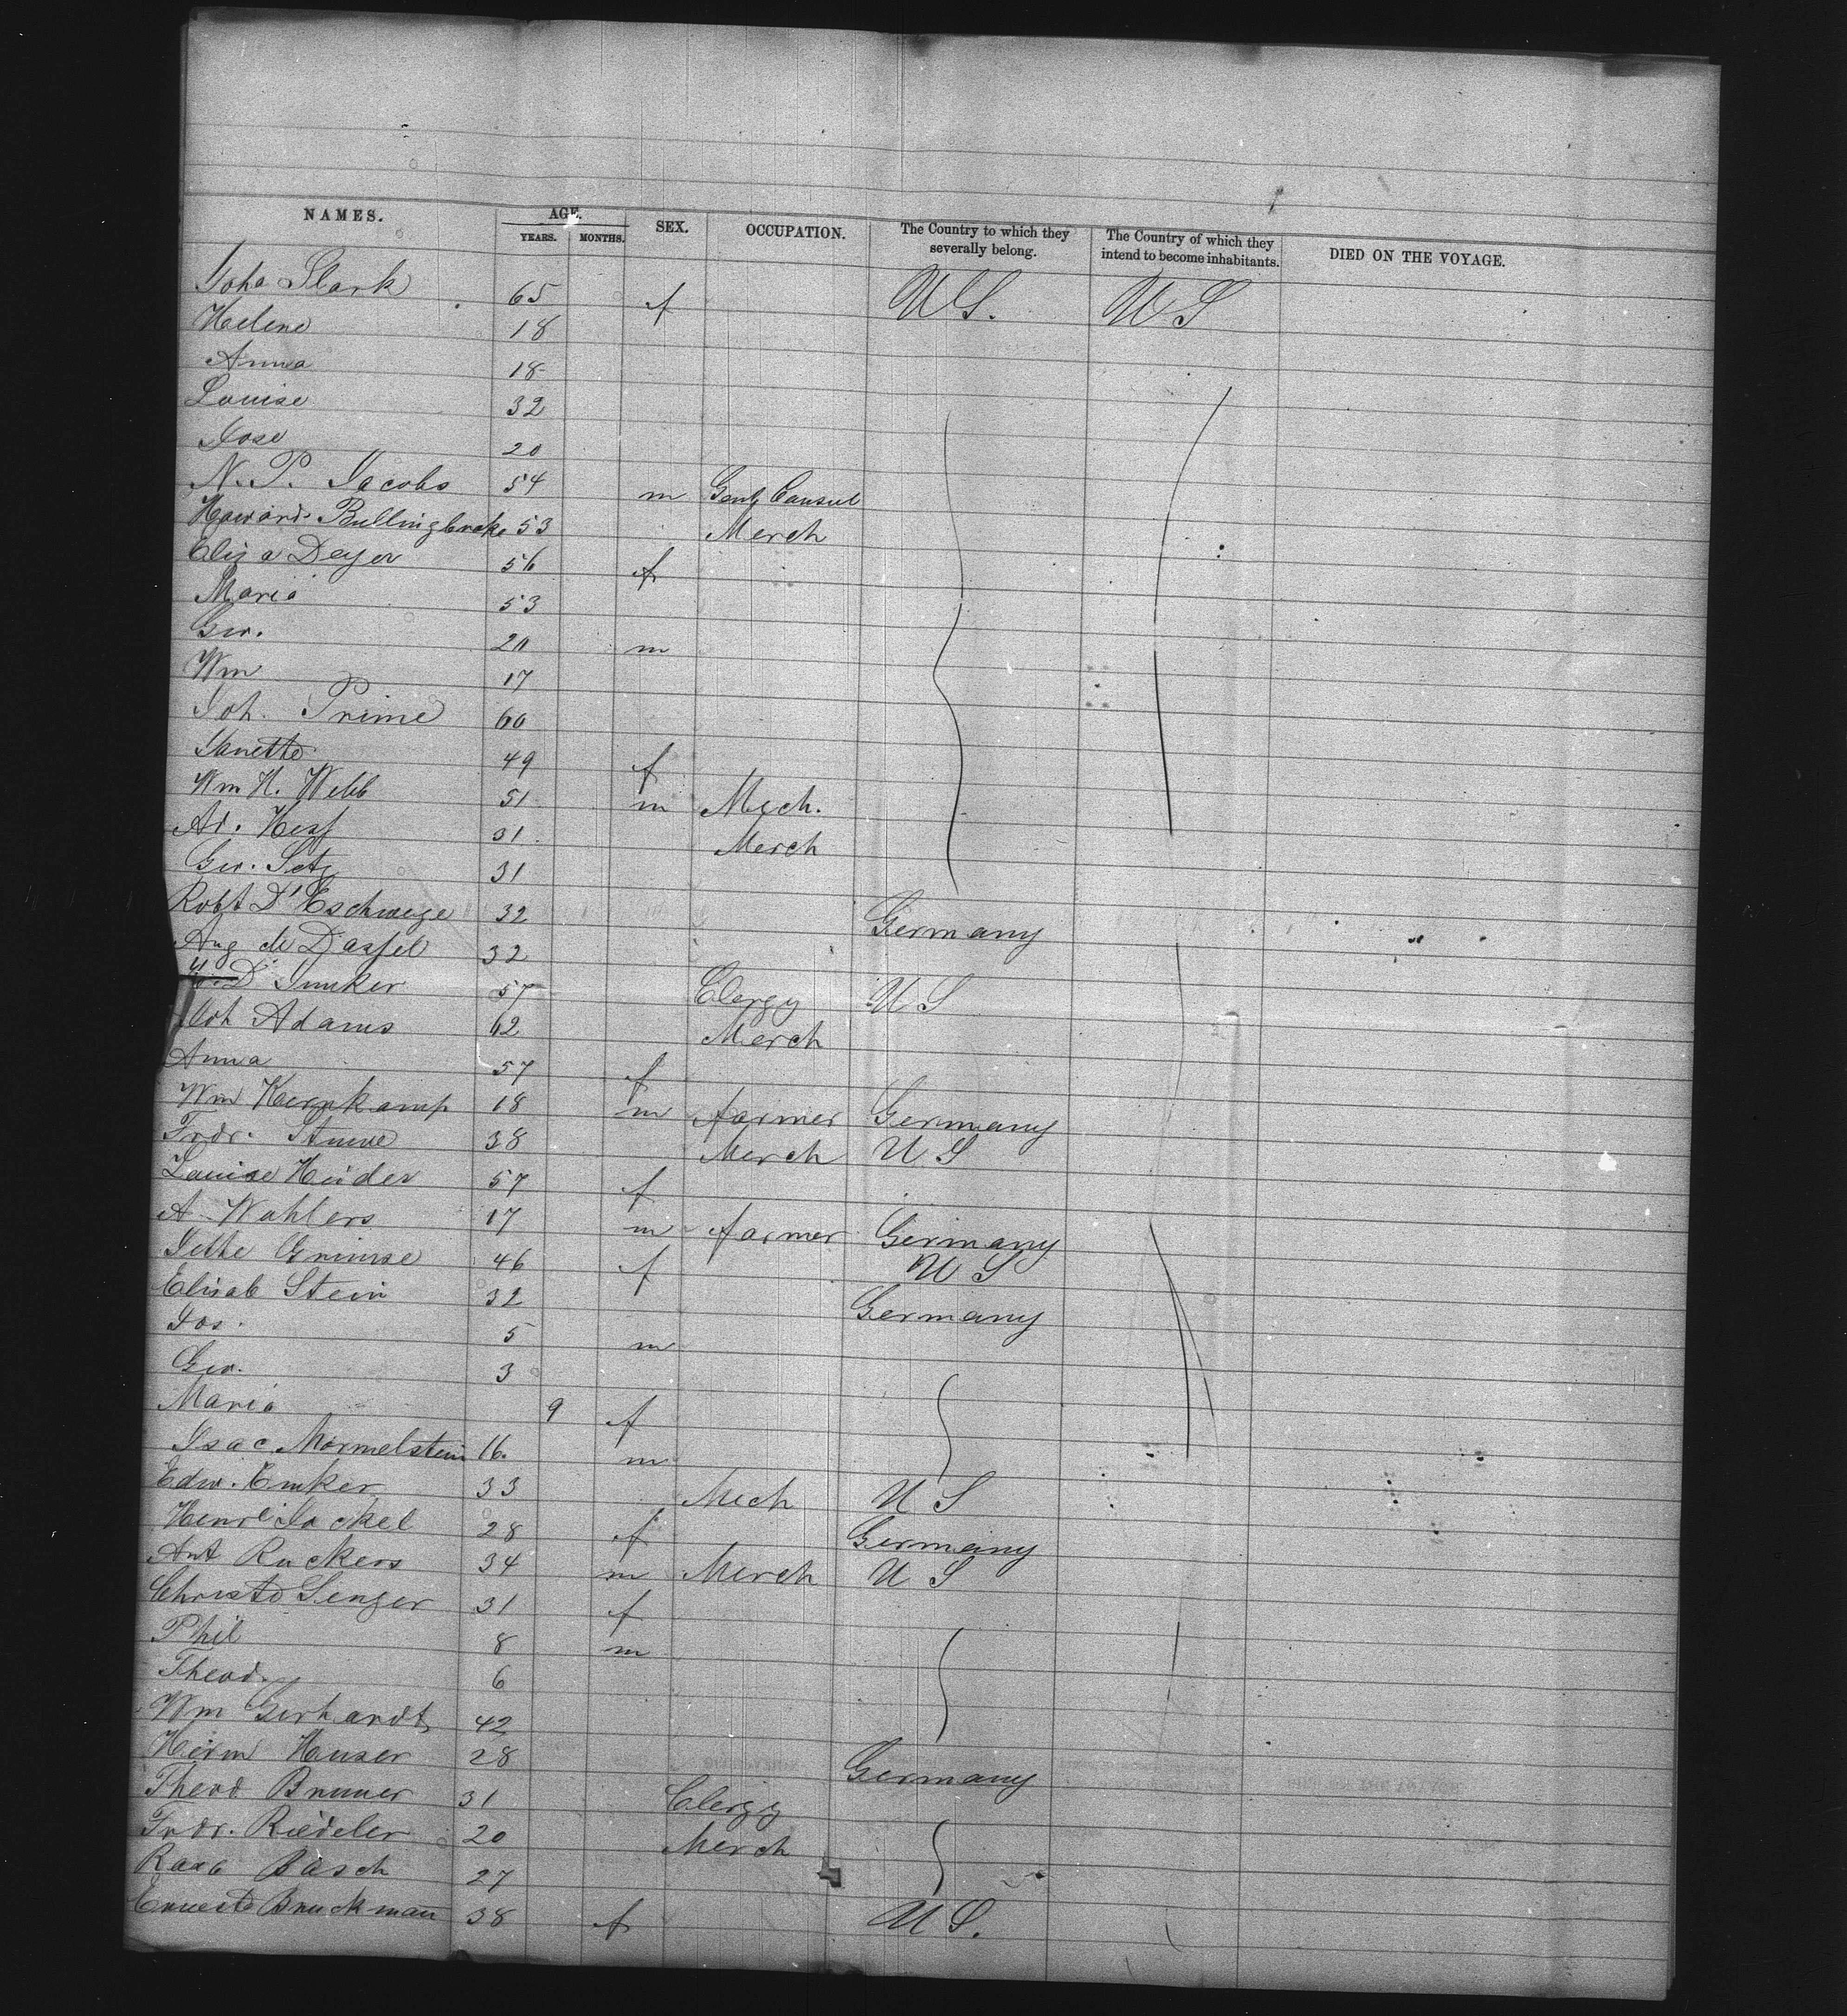 NAMES. AGE. YEARS. MONTHS. SEX. OCCUPATION. The Country to which they severally belong. The Country of which they intend to become inhabitants. DIED ON THE VOYAGE.
Joha Stark 65 f U S. U S
Helene 18
Anna 18
Louise 32
Jose 20
N. P. Jacobs 54 m Consul
Howard Bullingbroke 53 Merch
Eliza Deyer 56 f
Maria 53
Geo. 20 m
Wm 17
Joh. Prime 60
Janette 49 f
Wm H. Webb 51 m Mech.
Ad. Hess 31 Merch
Geo. 31
Robt D'Eschwege 32 Germany
Aug de Dassel 32
D Junker 57 Clergy U S
Joh Adams 62 Merch
Anna 57 f
Wm Kernkamp 18 m farmer Germany
Fredr. Stueve 38 Merch U S
Louise Heider 57 f
A Wahlers 17 m farmer Germany
Jette Grimse 46 f U S
Elisab Stein 32 Germany
Jos. 5 m
Geo. 3
Maria 9 f
Isac Mormelstein 16. m
Edw. Emker 33 Mech U S
28 f Germany
Ant Ruckers 34 m Merch U S
Christe Senger 31 f
Phil 8 m
Theod. 6
Wm Gerhardt 42
Herm Hauser 28 Germany
Theod Bruner 31 Clergy
Fredr. Riedeler 20 Merch
Basch 27
Bruckman 38 f U S.